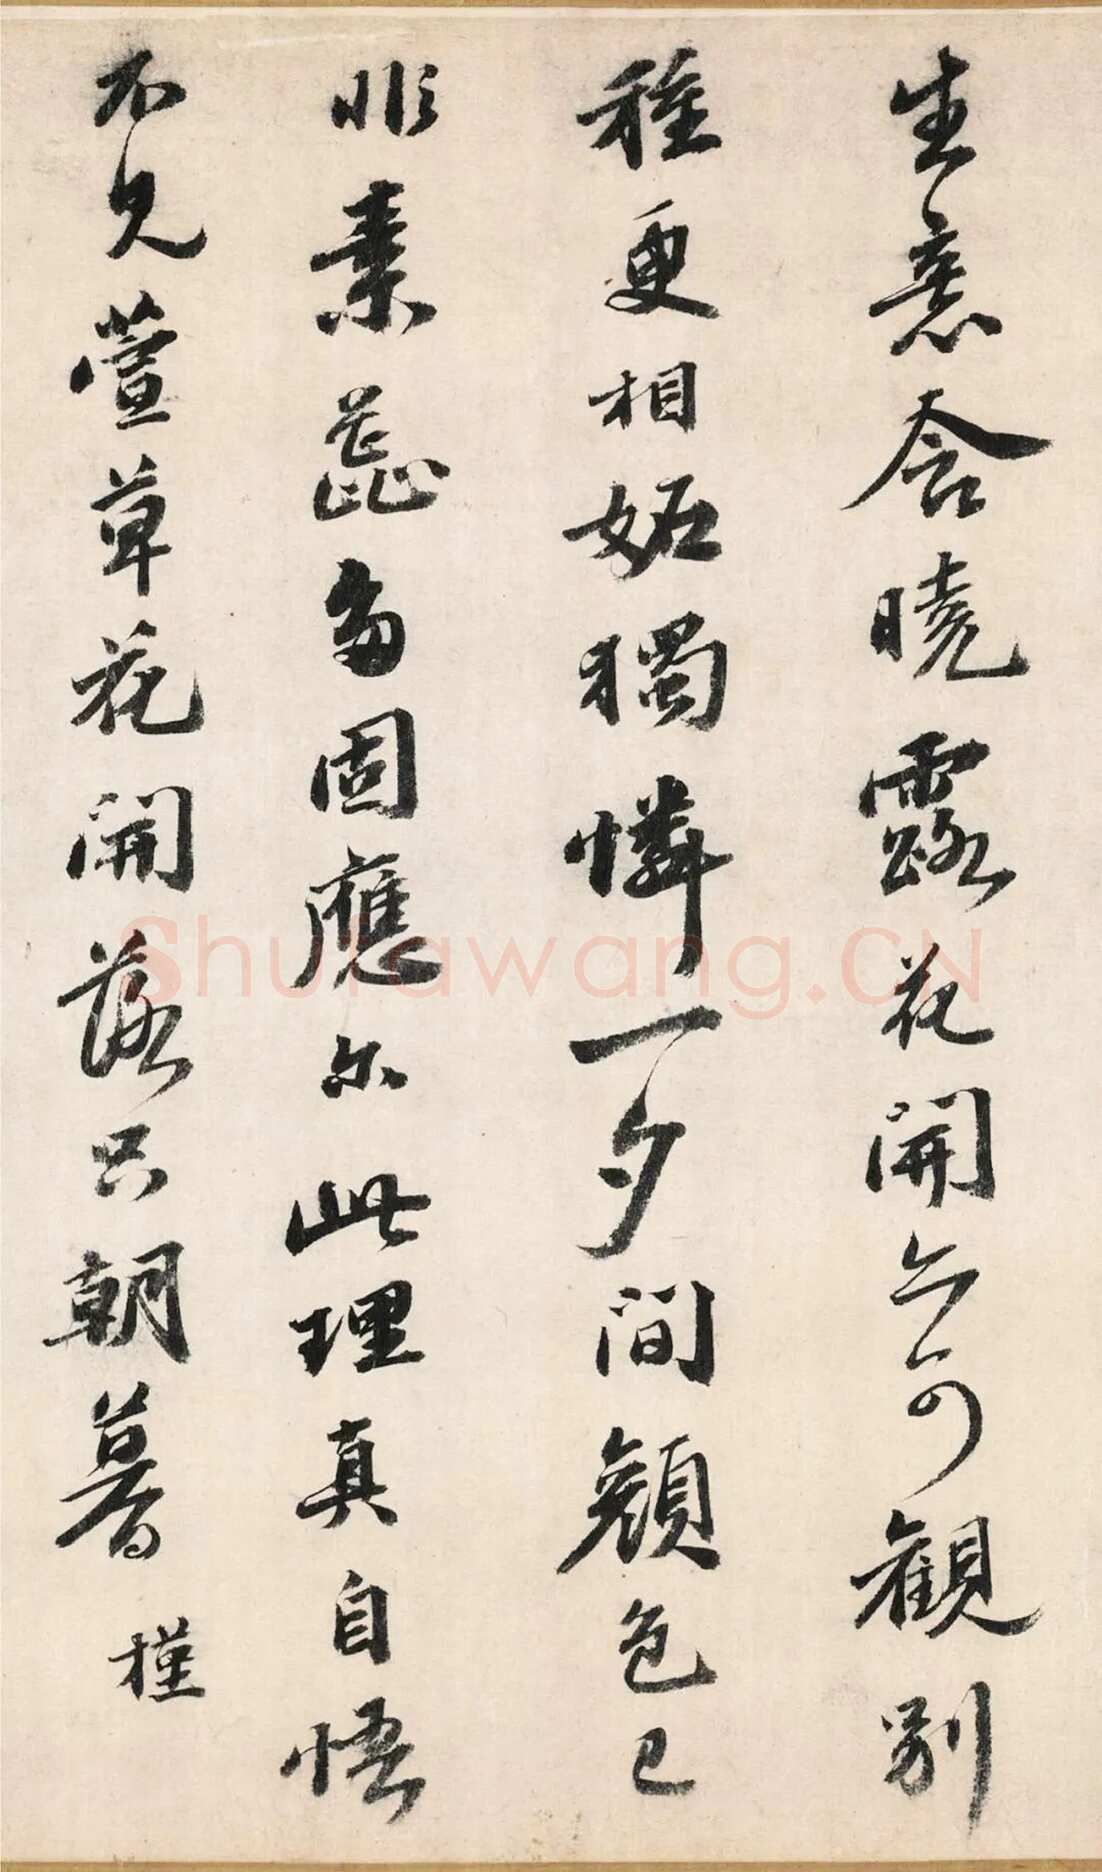 生意含曉露花開亦可觀別
種更相妬獨憐一夕間顏色已
非素蕊多固應尔此理真自悟
不見萱草花開落只朝暮 槿
Shufawang.CN